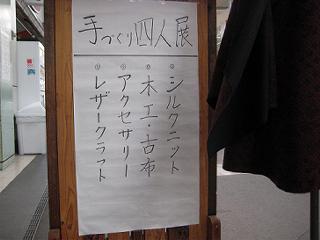 手づくり四人展
◎シルクニット
◎木工・古布
◎アクセサリー
◎レザークラフト